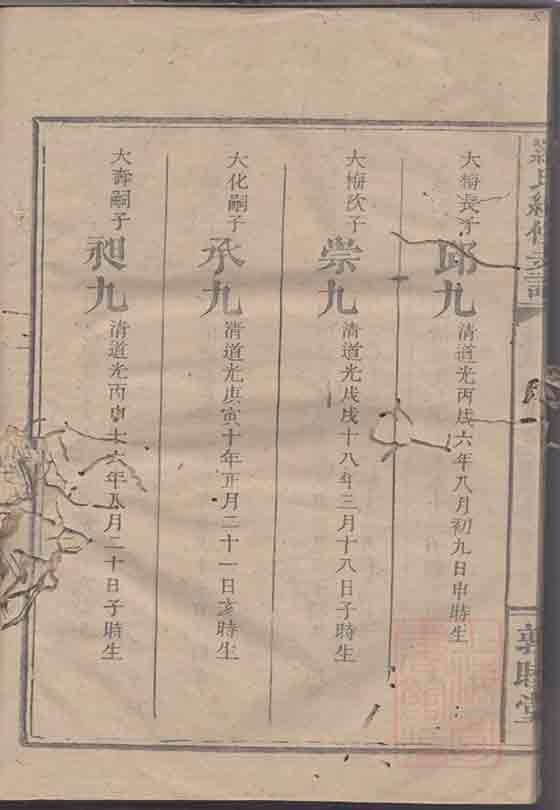 羅氏續修支譜
敦睦堂
大梅長子 邱九 清道光丙戌六年八月初九日申時生
大梅次子 崇九 清道光戊戌十八年三月十八日子時生
大化嗣子 承九 清道光庚寅十年正月二十一日亥時生
大壽嗣子 昶九 清道光丙申十六年八月二十日子時生